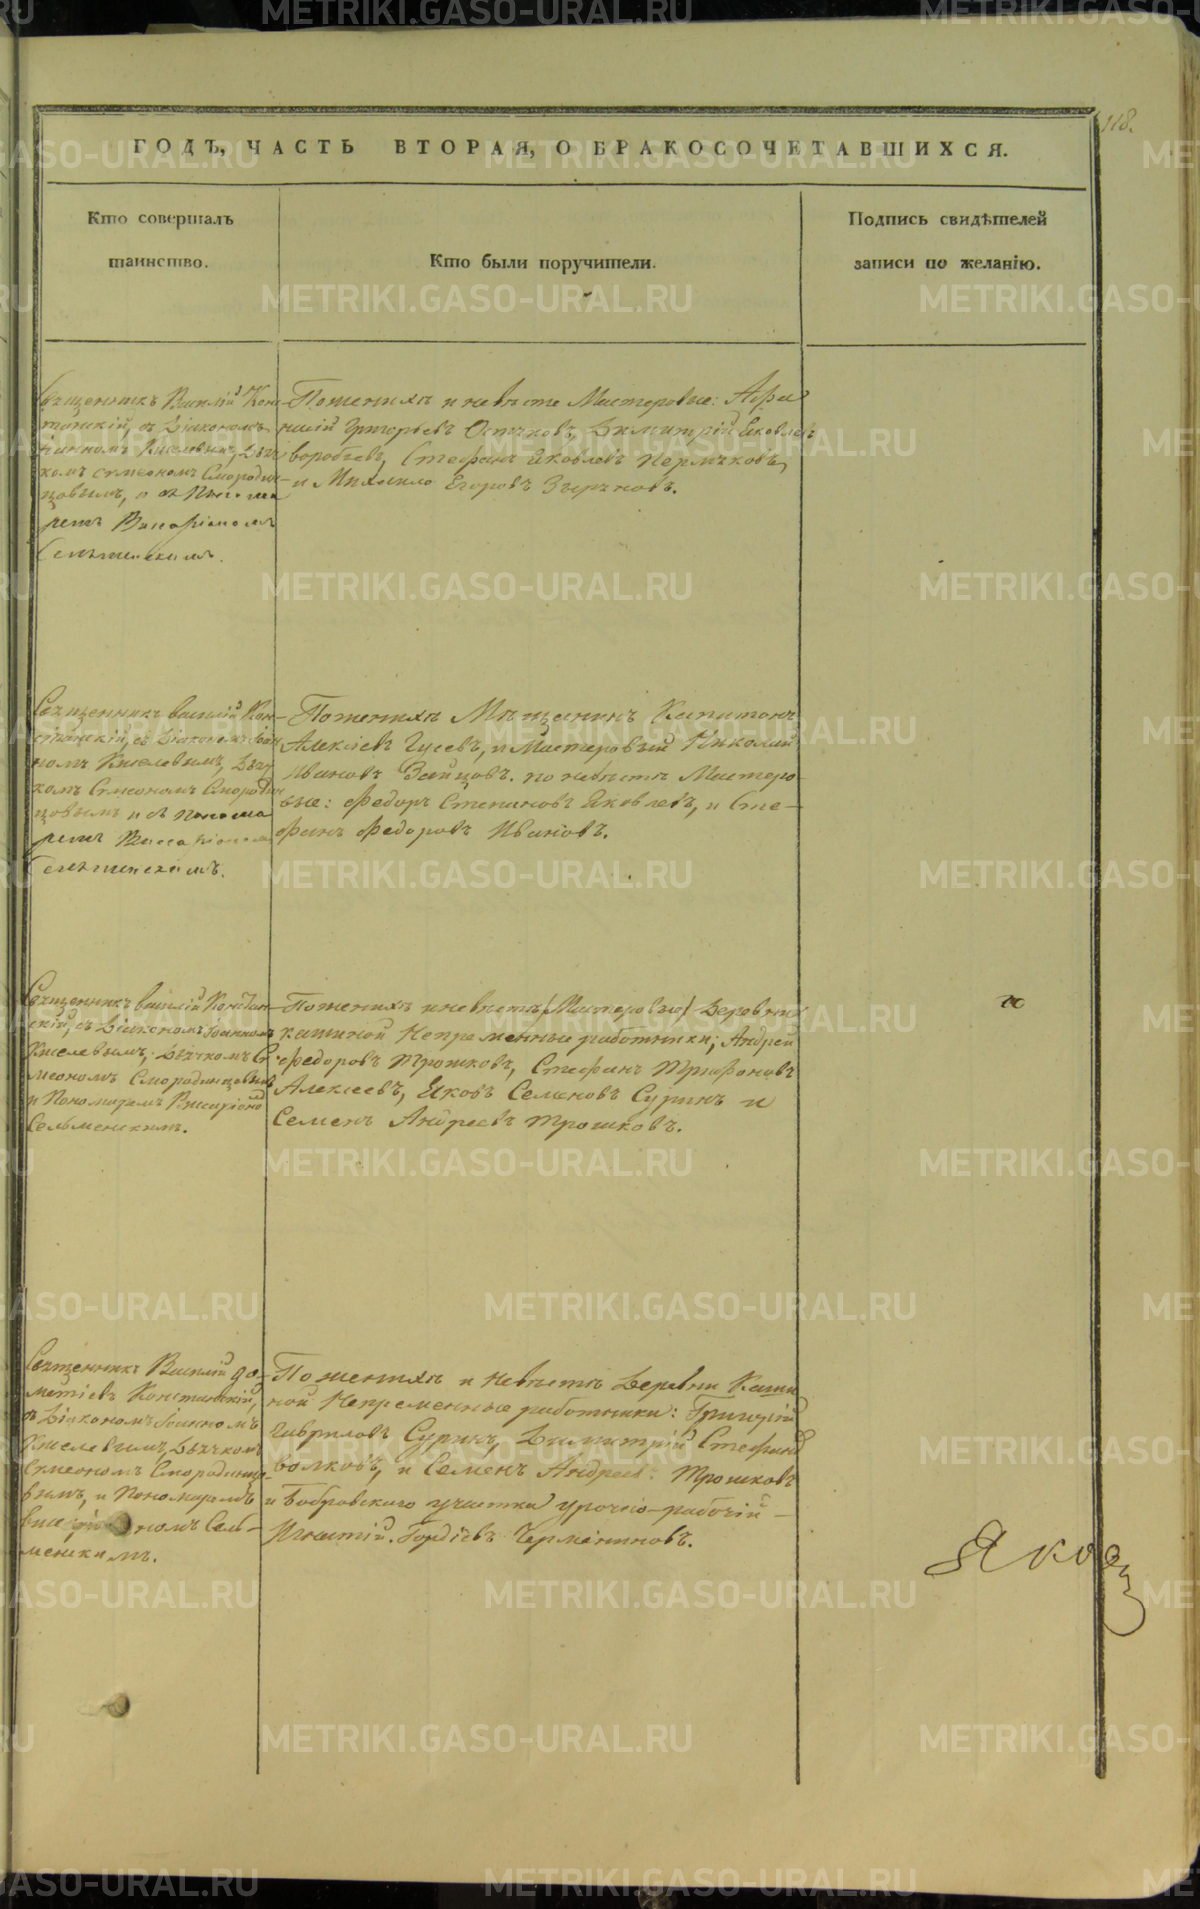 118.
ГОДЪ, ЧАСТЬ ВТОРАЯ, О БРАКОСОЧЕТАВШИХСЯ.
Кто совершалъ
таинство.
Кто были поручители.
Подпись свидѣтелей
записи по желанію.
Священникъ Василій Конс-
танскій, съ Діакономъ
Іоанномъ Киселевымъ, Дьяч-
комъ Симеономъ Смородин-
цовымъ, и съ Понома
ремъ Висаріономъ
Сельменскимъ.
По женихѣ и невѣсте Мастеровые: Афа
насій Григорьевъ Димитрій Яковлев
Воробьевъ, Стефанъ Яковлевъ Пермяковъ,
и Михаило Егоровъ Звѣрковъ.
Священникъ Василій Кон-
станскій, съ Діакономъ Іоан
номъ Киселевымъ, Дьяч
комъ Симеономъ Смородин
цовымъ и съ Понома
ремъ Виссаріономъ
Сельменскимъ.
По женихѣ Мѣщанинъ Капитонъ
Алексіевъ Гусевъ, и Мастеровый Николай
Ивановъ Зайцовъ. по невѣстѣ Мастеро
вые: Федоръ Степановъ Яковлевъ, и Сте-
фанъ Федоровъ Ивановъ.
Священникъ Василій Констан
скій, съ Діакономъ Іоанномъ
Киселевымъ, Дьячкомъ Си
меономъ Смородинцовымъ
и Пономаремъ Висаріоно
Сельменскимъ.
По женихѣ и невѣстѣ (Мастеровые) Деревни
Кашиной Непременные работники; Андрей
Федоровъ Трошковъ, Стефанъ Трифоновъ
Алексеевъ, Яковъ Семеновъ Суринъ и
Семенъ Андреевъ Трошковъ.
и
Священникъ Василій До-
метіевъ Констанскій,
съ Діакономъ Іоанномъ
Киселевымъ, Дьячкомъ
Симеономъ Смородинцо-
вымъ, и Пономаремъ
номъ Сель-
менскимъ.
По женихѣ и невѣстѣ Деревни Каши
ной Непременные работники: Григорій
Гавриловъ Суринъ, Димитрій Стефано
Волковъ, и Семенъ Андреев: Трошковъ
и Бобровскаго участка урочно-рабочій-
Игнатій Гордіевъ
Яковъ
METRIKI.GASO-URAL.RU